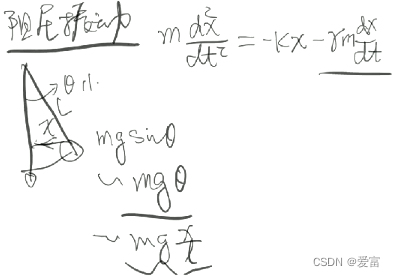 阻尼振动 m d²x/dt² = -kx - γm dx/dt
θ小
L
x
mg sinθ
~ mgθ
~ mg x/L
CSDN @爱富